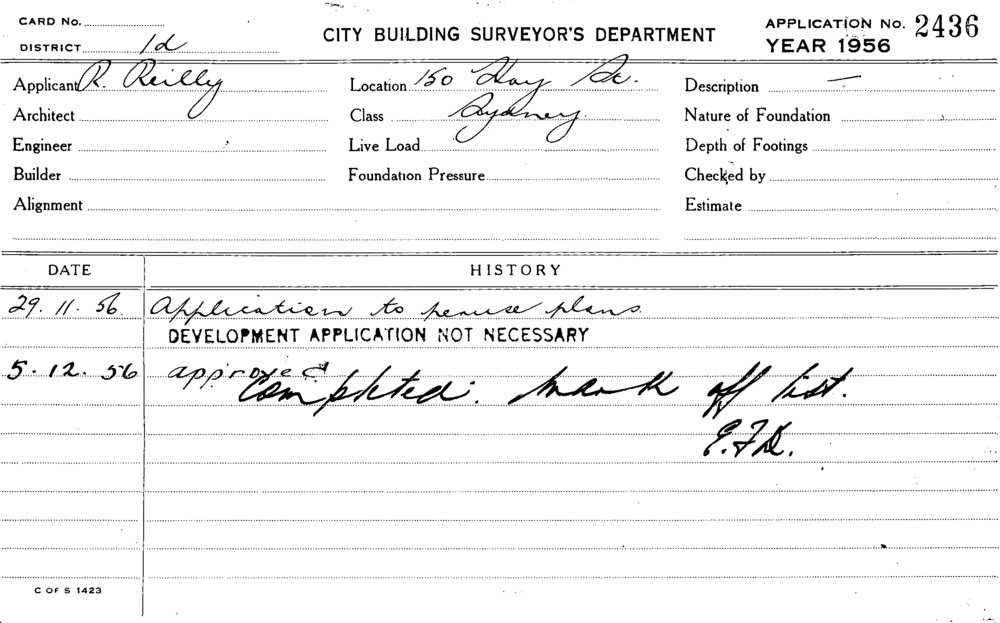 CARD No.
DISTRICT 1d
CITY BUILDING SURVEYOR'S DEPARTMENT
APPLICATION No. 2436
YEAR 1956
Applicant R. Reilly
Location 150 Hay St.
Description —
Architect
Class Sydney.
Nature of Foundation
Engineer
Live Load
Depth of Footings
Builder
Foundation Pressure
Checked by
Alignment
Estimate
DATE HISTORY
29. 11. 56. Application to peruse plans.
DEVELOPMENT APPLICATION NOT NECESSARY
5. 12. 56 approved
Completed. Mark off list.
C OF S 1423